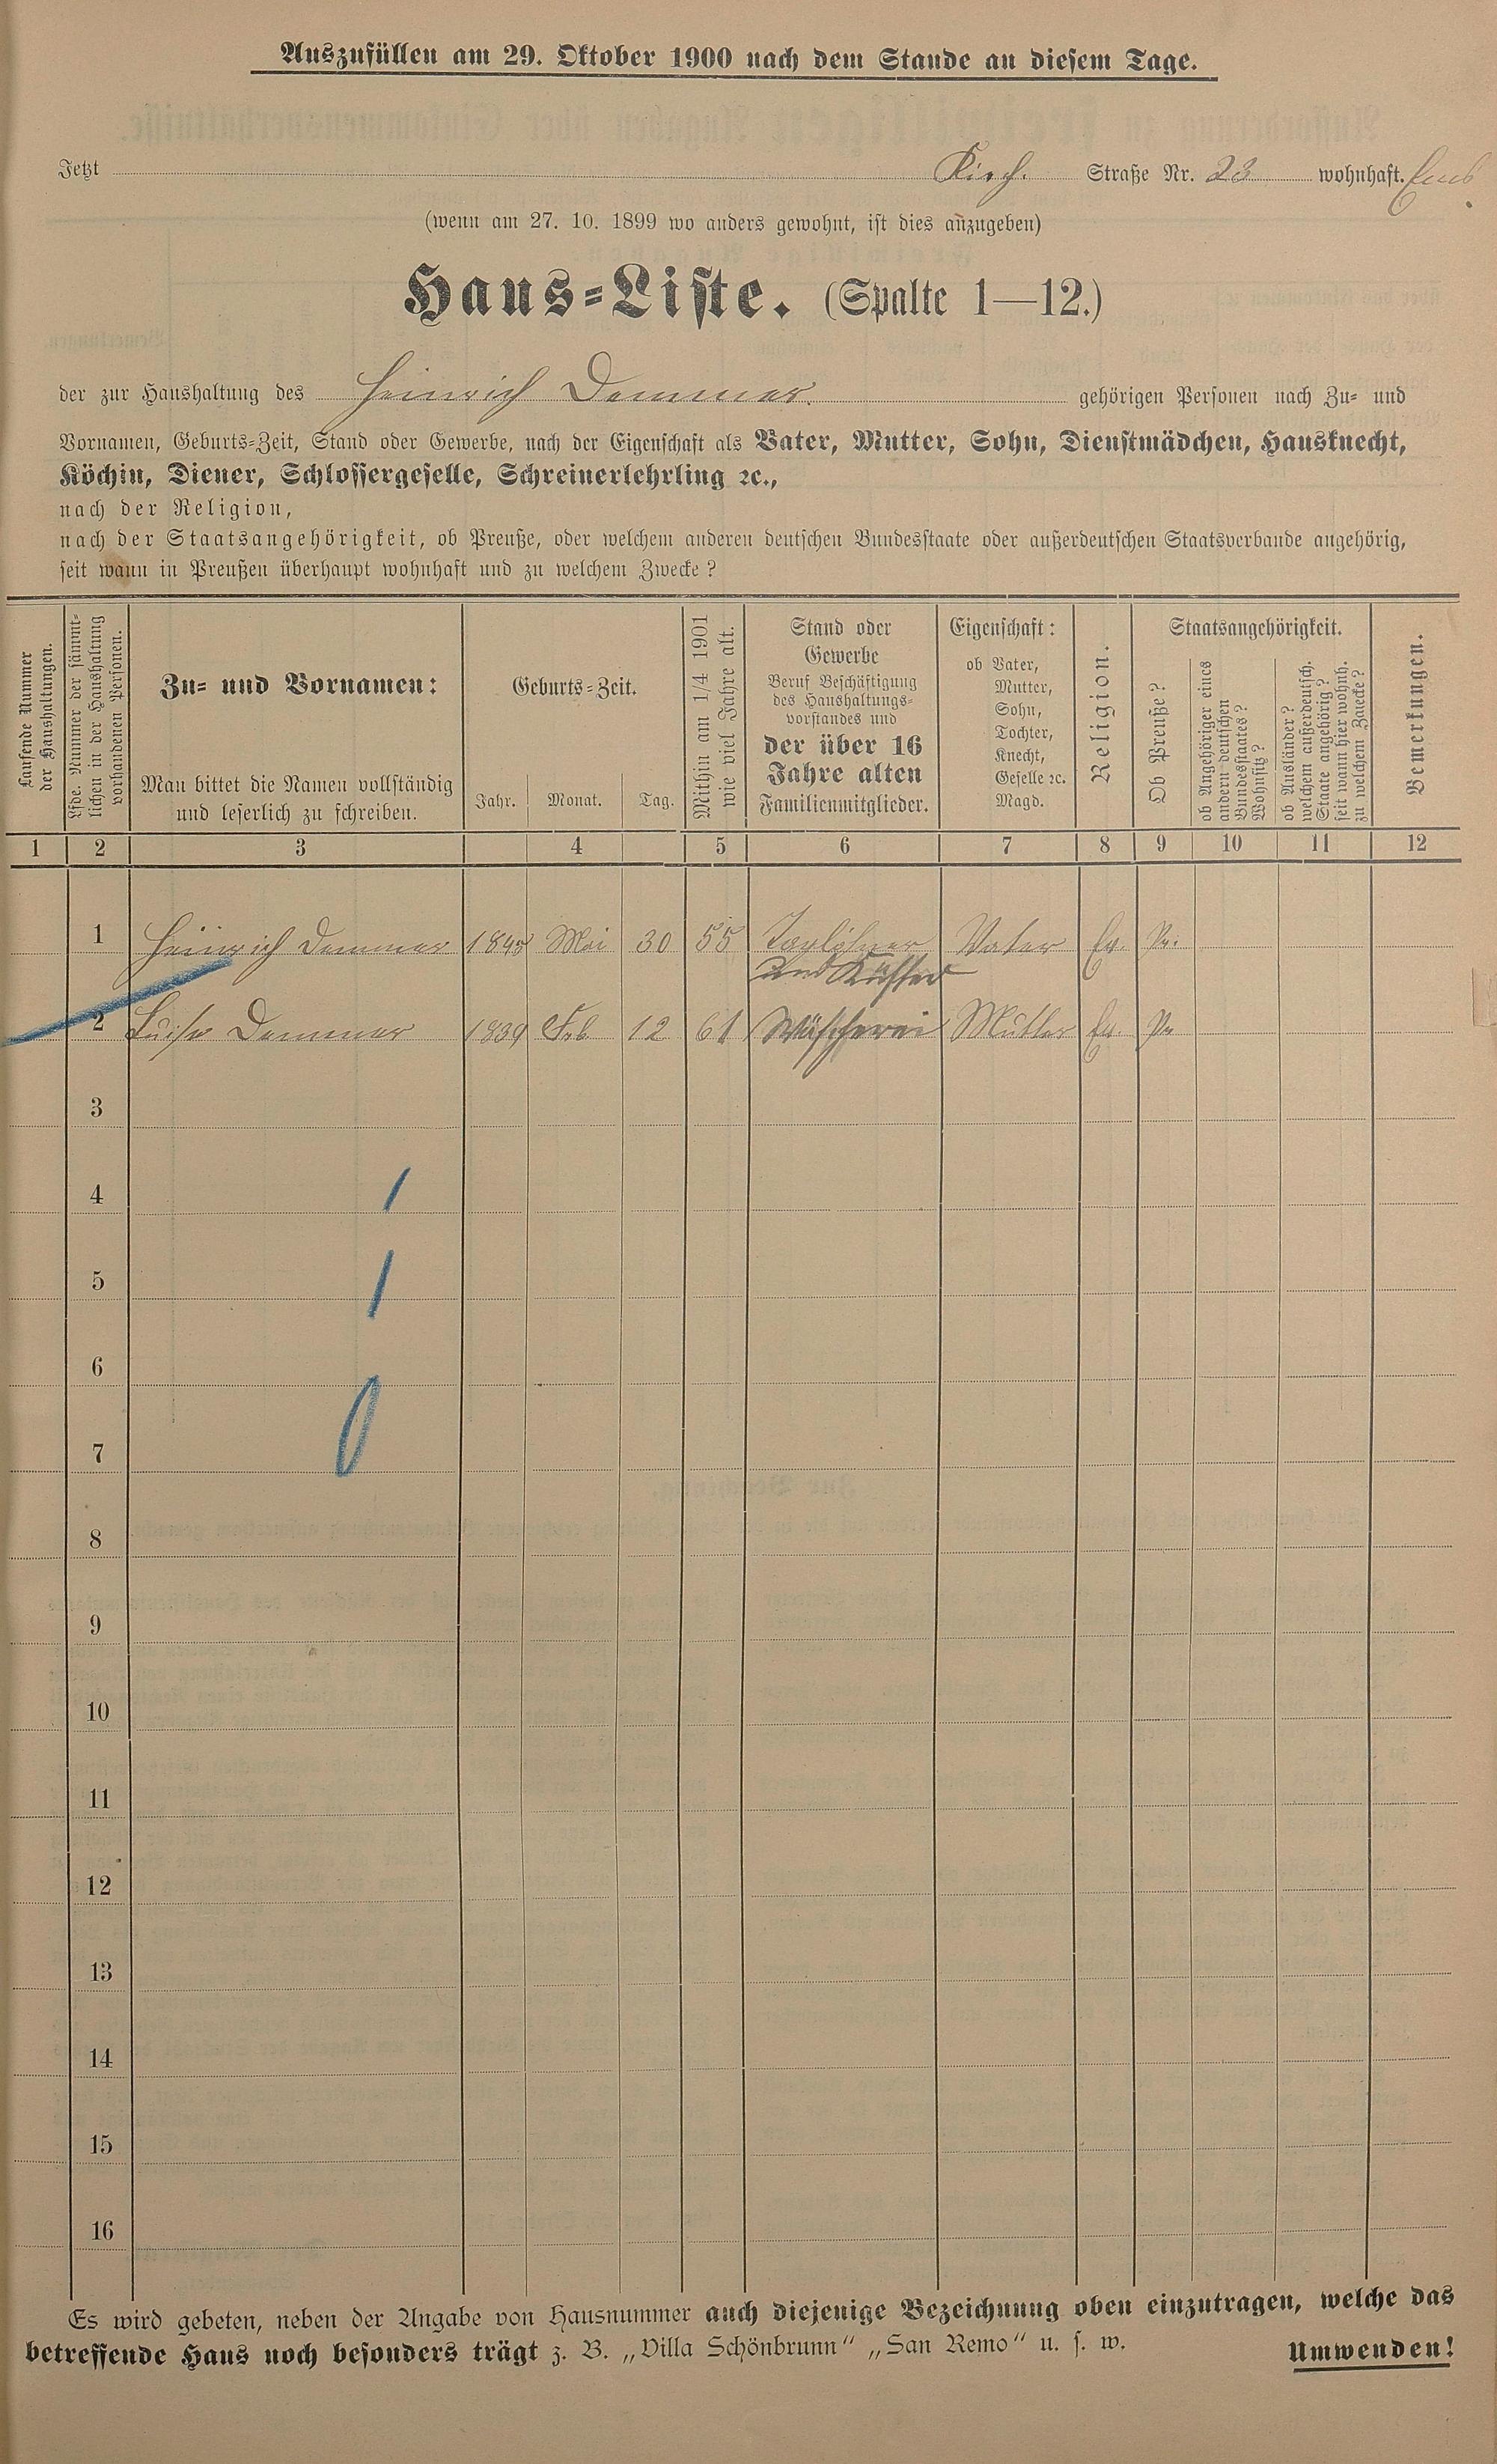 Auszufüllen am 29. Oktober 1900 nach dem Stande an diesem Tage.
Jetzt Kirch. Straße Nr. 23 wohnhaft. Ems
(wenn am 27. 10. 1899 wo anders gewohnt, ist dies anzugeben)
Haus-Liste. (Spalte 1—12.)
der zur Haushaltung des Heinrich Demmer. gehörigen Personen nach Zu- und
Vornamen, Geburts-Zeit, Stand oder Gewerbe, nach der Eigenschaft als Vater, Mutter, Sohn, Dienstmädchen, Hausknecht,
Köchin, Diener, Schlossergeselle, Schreinerlehrling ꝛc.,
nach der Religion,
nach der Staatsangehörigkeit, ob Preuße, oder welchem anderen deutschen Bundesstaate oder außerdeutschen Staatsverbande angehörig,
seit wann in Preußen überhaupt wohnhaft und zu welchem Zwecke?
Laufende Nummer
der Haushaltungen.
Lfde. Nummer der sämmt-
lichen in der Haushaltung
vorhandenen Personen.
Zu- und Vornamen:
Man bittet die Namen vollständig
und leserlich zu schreiben.
Geburts-Zeit.
Jahr. Monat. Tag.
Mithin am 1/4 1901
wie viel Jahre alt.
Stand oder
Gewerbe
Beruf Beschäftigung
des Haushaltungs-
vorstandes und
der über 16
Jahre alten
Familienmitglieder.
Eigenschaft:
ob Vater,
Mutter,
Sohn,
Tochter,
Knecht,
Geselle ꝛc.
Magd.
Religion.
Staatsangehörigkeit.
Ob Preuße?
ob Angehöriger eines
andern deutschen
Bundesstaates?
Wohnsitz?
ob Ausländer?
welchem außerdeutsch.
Staate angehörig?
seit wann hier wohnh.
zu welchem Zwecke?
Bemerkungen.
1 2 3 4 5 6 7 8 9 10 11 12
1 Heinrich Demmer 1845 Mai 30 55 Taglöhner Vater Ev. Pr.
und Küster
2 Luise Demmer 1839 Feb. 12 61 Wäscherei Mutter Ev. Pr
3
4
5
6
7
8
9
10
11
12
13
14
15
16
Es wird gebeten, neben der Angabe von Hausnummer auch diejenige Bezeichnung oben einzutragen, welche das
betreffende Haus noch besonders trägt z. B. „Villa Schönbrunn“ „San Remo“ u. s. w.
Umwenden!